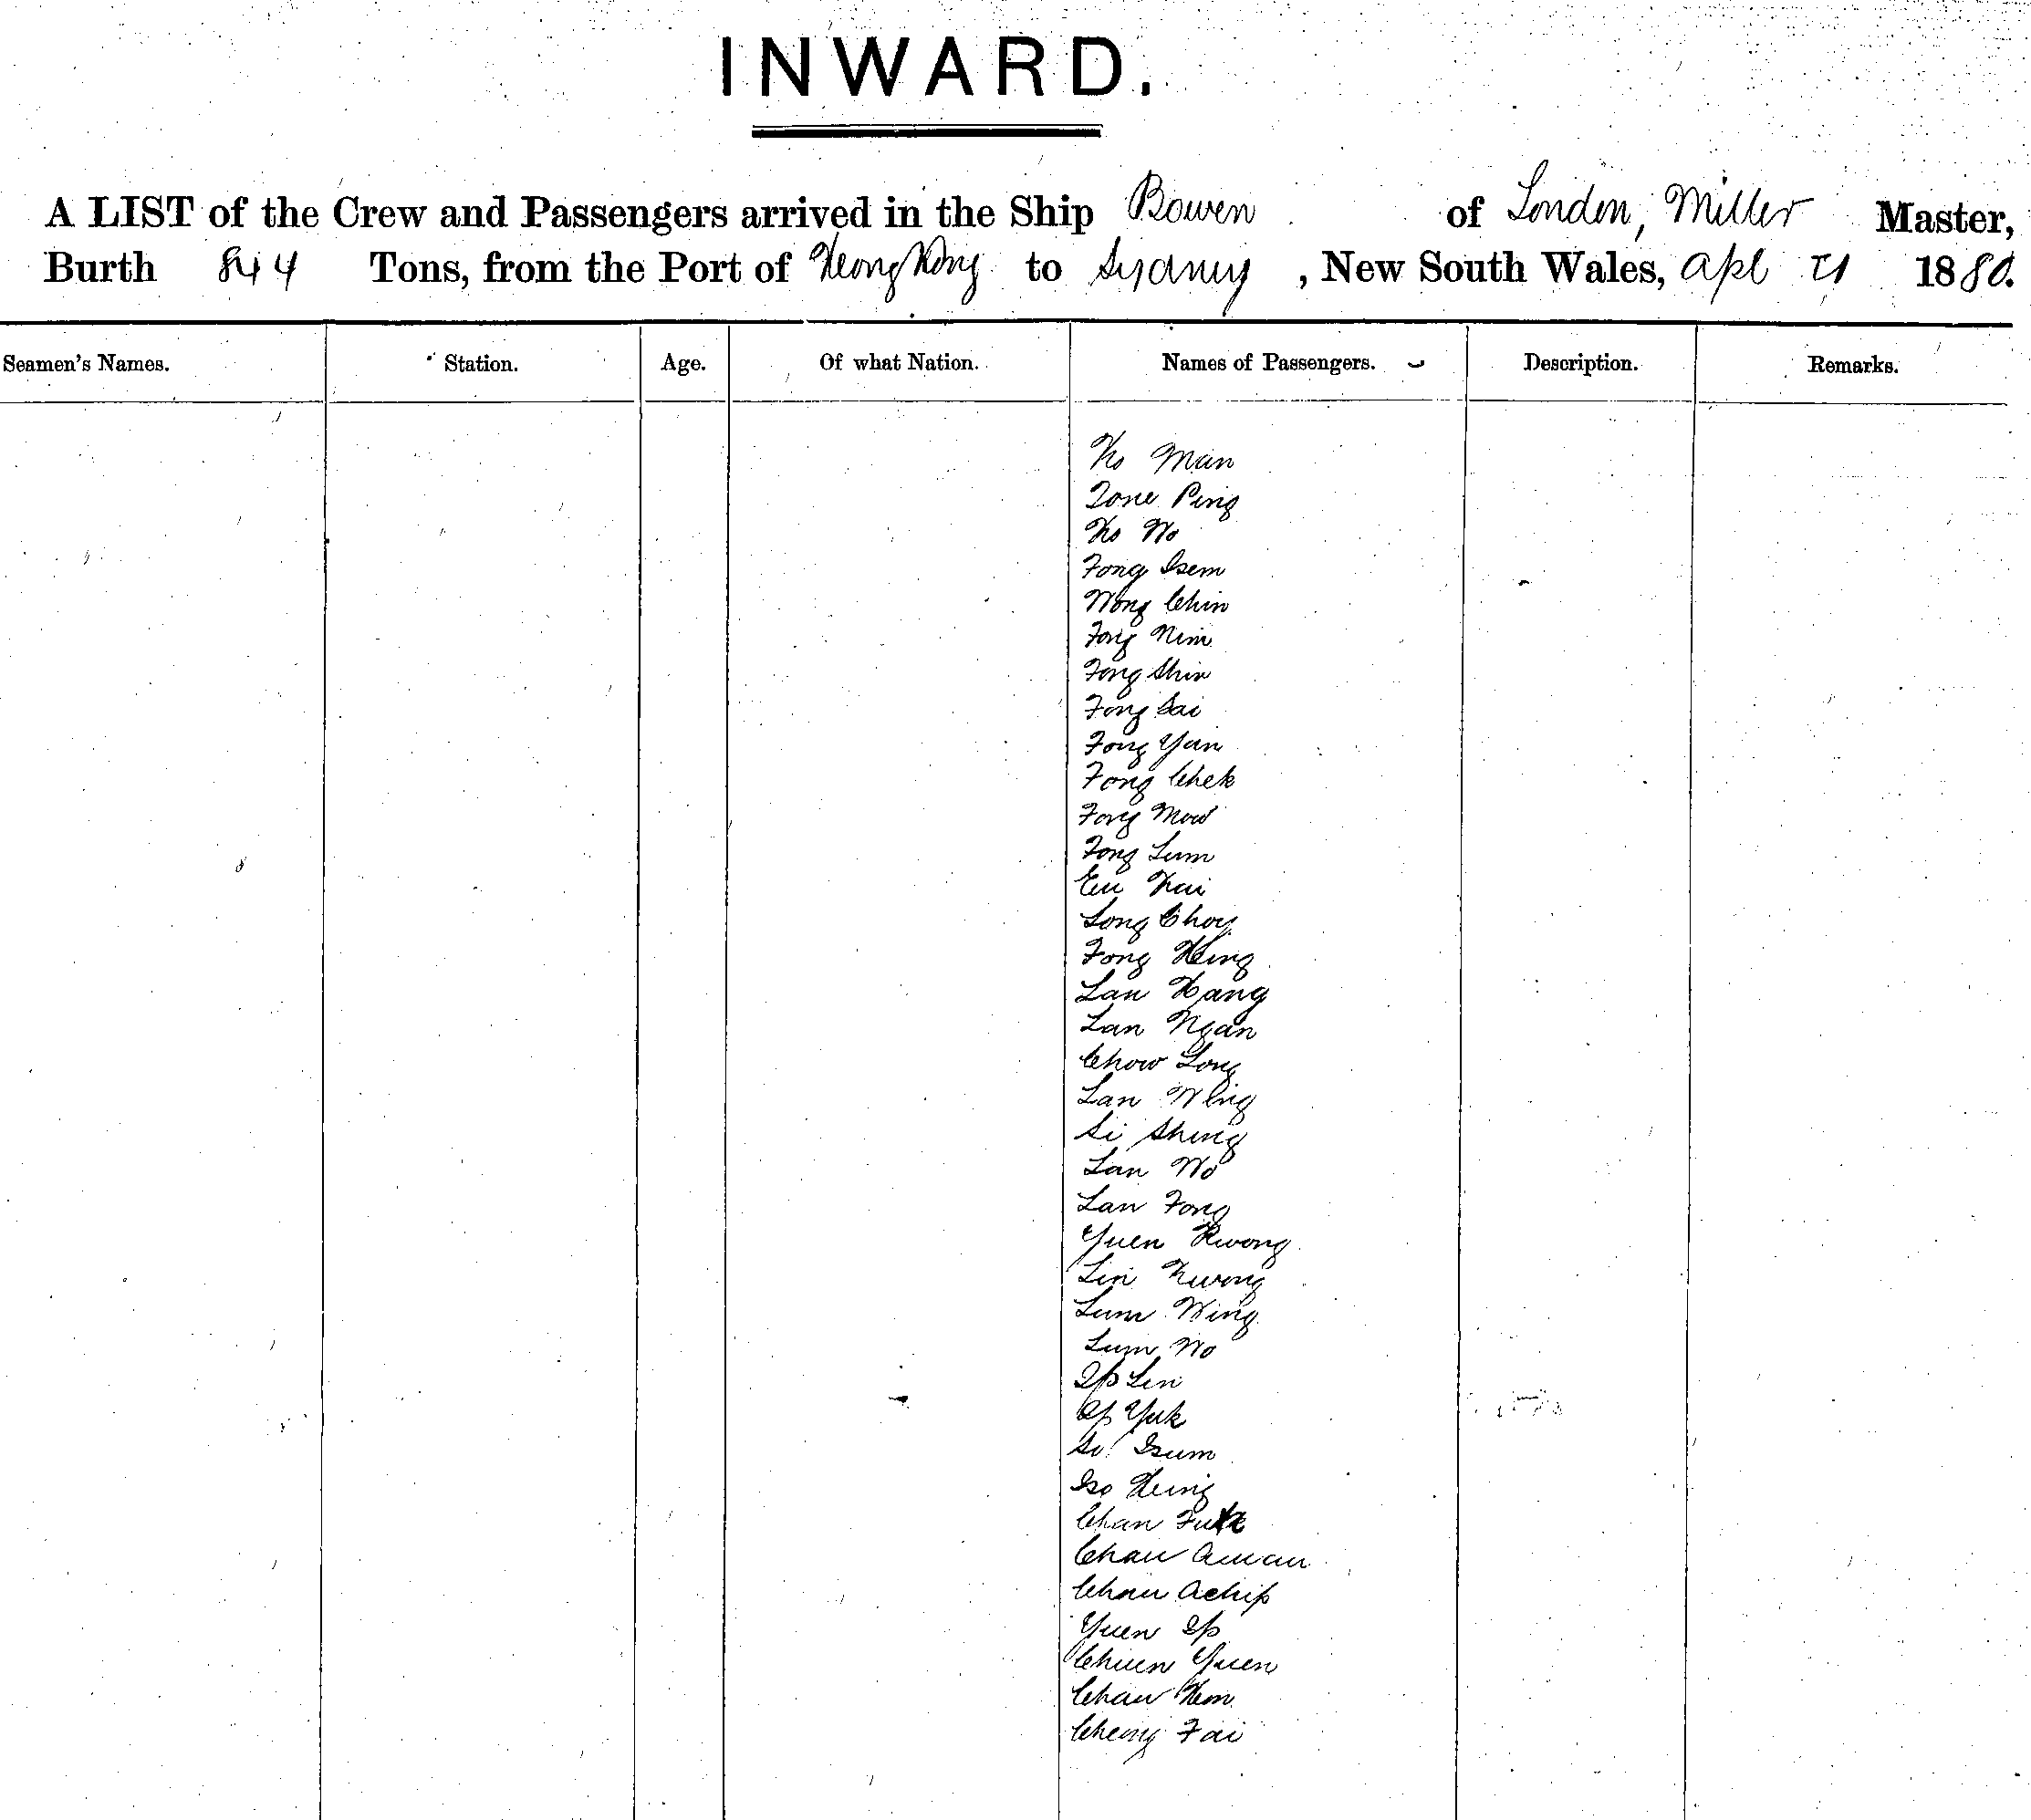 INWARD.
A LIST of the Crew and Passengers arrived in the Ship Bowen of London, Miller Master,
Burth 844 Tons, from the Port of Hong Kong to Sydney, New South Wales, Apl 21 1880.
Seamen's Names. Station. Age. Of what Nation. Names of Passengers. Description. Remarks.
Ho Man
Tone Ping
Ho Wo
Fong Tsem
Wong Chin
Fong Nim
Fong Shin
Fong Sai
Fong Yan
Fong Chek
Fong Mow
Fong Lum
Eu Kai
Long Choy
Fong Hing
Lan Hang
Lan Ngan
Chow Long
Lan Wing
Si Shing
Lan Wo
Lan Fong
Yuen Kwong
Lin Kwong
Lum Wing
Lum Wo
Ip Lin
Ip Yuk
So Tsum
Tso Hing
Chan
Chau
Chau Achip
Yuen Ip
Chuen Yuen
Chau Hem
Cheong Fai